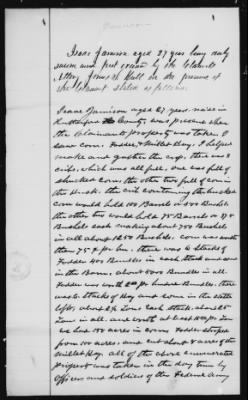 Isaac Jamison aged 27 years being duly
sworn and put        by the Claimants
Atty James         Hull in the presence of
the Claimant states as follows.
Isaac Jamison aged 27 years reside in
Rutherford County, was present when
the Claimants property was taken. I
saw corn. Fodder & Millet Hay. I helped
make and gather the crop, there was 3
cribs, which was all full, one was full of
shucked corn, the other two full of corn in
the shuck. the crib containing the shucked
corn would hold 100 Barrels or 500 Bushels
the other two would hold 75 Barrels or
Bushels each making about 750 Bushels
in all about 1250 Bushels. corn was worth
then 75 ¢ pr bu, there was 10 Stacks of
Fodder 400 Bundles in each Stack and some
in the Barn, about 5000 Bundles in all.
Fodder was worth            pr hundred Bundles, there
was       stacks of Hay and some in the stable
lofts, about 2½ Tons each stack, about
Tons in all. and worth at least       pr ton
we had 100 acres in corn Fodder striped
from 100 acres. and cut about 8 acres of the
Millet Hay all of the above enumerated
property was taken in the day time by
Officers and soldiers of the Federal Army